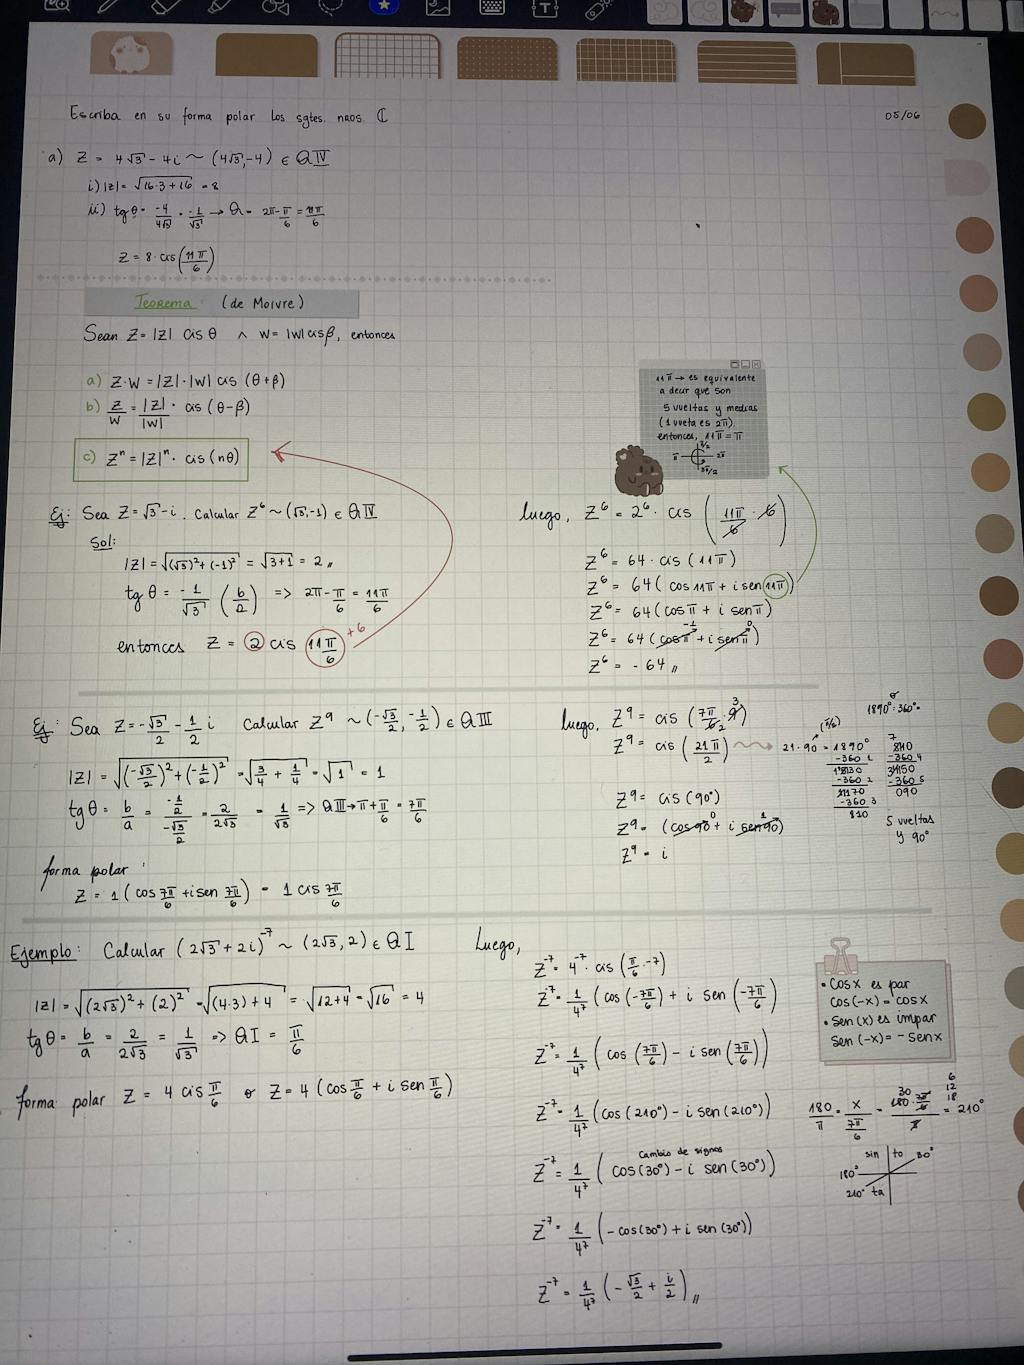 Escriba en su forma polar los sgtes. nros. ℂ
05/06
a) Z = 4√3 - 4i ~ (4√3,-4) ∈ QIV
i) |z| = √(16·3+16) = 8
ii) tgθ = -4/4√3 = -1/√3 → Q = 2π-π/6 = 11π/6
Z = 8·cis(11π/6)
Teorema (de Moivre)
Sean Z = |Z| cis θ ∧ W = |W| cis β, entonces
a) Z·W = |Z|·|W| cis (θ+β)
b) Z/W = |Z|/|W| · cis (θ-β)
c) Zⁿ = |Z|ⁿ · cis (nθ)
11π → es equivalente
a decir que son
5 vueltas y medias
(1 vuelta es 2π).
entonces, 11π = π
π/2
π 2π
3π/2
Ej: Sea Z = √3 - i. Calcular Z⁶ ~ (√3,-1) ∈ QIV
Sol:
|Z| = √((√3)²+(-1)²) = √(3+1) = 2 //
tgθ = -1/√3 (b/a) => 2π-π/6 = 11π/6
entonces Z = 2 cis 11π/6 +6
luego, Z⁶ = 2⁶ · cis (11π/6 · 6)
Z⁶ = 64 · cis (11π)
Z⁶ = 64 (cos 11π + i sen 11π)
Z⁶ = 64 (cos π + i sen π)
Z⁶ = 64 (cos π -1 + i sen π 0)
Z⁶ = -64 //
Ej: Sea Z = -√3/2 - 1/2 i Calcular Z⁹ ~ (-√3/2, -1/2) ∈ QIII
|Z| = √((-√3/2)² + (-1/2)²) = √(3/4 + 1/4) = √1 = 1
tgθ = b/a = (-1/2)/(-√3/2) = 2/2√3 = 1/√3 => QIII → π + π/6 = 7π/6
forma polar:
Z = 1 (cos 7π/6 + i sen 7π/6) = 1 cis 7π/6
luego, Z⁹ = cis (7π/6 2 · 9 3)
Z⁹ = cis (21π/2)
Z⁹ = cis (90°)
Z⁹ = (cos 90 0 + i sen 90 1)
Z⁹ = i
o
1890° : 360° =
(π/2)
21·90 = 1890°
-360 1
-360 2
-360 3
810
-360 4
-360 5
090
5 vueltas
y 90°
Ejemplo: Calcular (2√3 + 2i)⁻⁷ ~ (2√3, 2) ∈ QI
|Z| = √((2√3)² + (2)²) = √((4·3) + 4) = √(12+4) = √16 = 4
tgθ = b/a = 2/2√3 = 1/√3 => QI = π/6
forma polar Z = 4 cis π/6 o Z = 4 (cos π/6 + i sen π/6)
Luego,
Z⁻⁷ = 4⁻⁷ · cis (π/6 · -7)
Z⁻⁷ = 1/4⁷ (cos (-7π/6) + i sen (-7π/6))
Z⁻⁷ = 1/4⁷ (cos (7π/6) - i sen (7π/6))
Z⁻⁷ = 1/4⁷ (cos (210°) - i sen (210°))
Cambio de signos
Z⁻⁷ = 1/4⁷ (cos(30°) - i sen (30°))
Z⁻⁷ = 1/4⁷ (-cos(30°) + i sen (30°))
Z⁻⁷ = 1/4⁷ (-√3/2 + i/2) //
• Cos x es par
cos(-x) = cos x
• Sen(x) es impar
sen (-x) = -sen x
6
12
18
180/π = x/(7π/6) = 30 180 · 7π/6 / π = 210°
sin to 30°
180°
210° ta